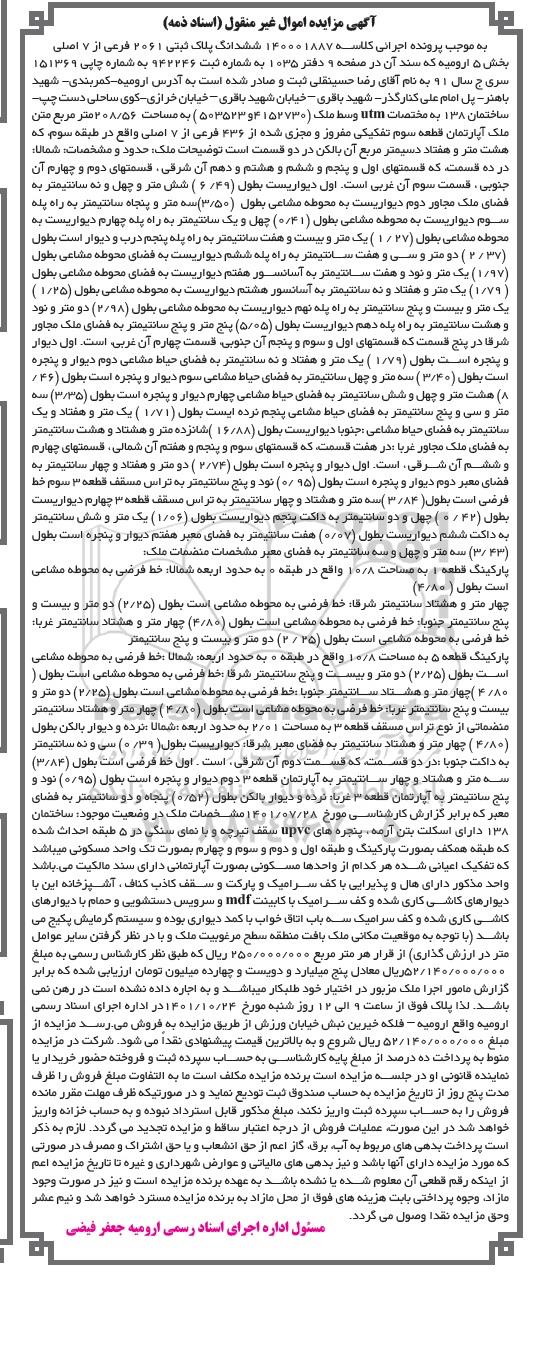 آگهی مزایده اموال غیر منقول (اسناد ذمه)
به موجب پرونده اجرائی کلاســـه ۱۴۰۰۰۱۸۸۷ ششدانگ پلاک ثبتی ۲۰۶۱ فرعی از ۷ اصلی
بخش ۵ ارومیه که سند آن در صفحه ۹ دفتر ۱۰۳۵ به شماره ثبت ۹۴۲۲۴۶ به شماره چاپی ۱۵۱۳۶۹
سری ج سال ۹۱ به نام آقای رضا حسینقلی ثبت و صادر شده است به آدرس ارومیه-کمربندی- شهید
باهنر- پل امام علی کنارگذر- شهید باقری – خیابان شهید باقری – خیابان خرازی-کوی ساحلی دست چپ-
ساختمان ۱۳۸ به مختصات utm وسط ملک (۴۱۵۲۷۳۰و ۵۰۳۵۲۳ ) به مساحت ۲۰۸/۵۶متر مربع متن
ملک آپارتمان قطعه سوم تفکیکی مفروز و مجزی شده از ۴۳۶ فرعی از ۷ اصلی واقع در طبقه سوم، که
هشت متر و هفتاد دسیمتر مربع آن بالکن در دو قسمت است توضیحات ملک: حدود و مشخصات: شمالا:
در ده قسمت، که قسمتهای اول و پنجم و ششم و هشتم و دهم آن شرقی ، قسمتهای دوم و چهارم آن
جنوبی ، قسمت سوم آن غربی است. اول دیواریست بطول (۴۹/ ۶ ) شش متر و چهل و نه سانتیمتر به
فضای ملک مجاور دوم دیواریست به محوطه مشاعی بطول (۳/۵۰)سه متر و پنجاه سانتیمتر به راه پله
ســوم دیواریست به محوطه مشاعی بطول (۰/۴۱) چهل و یک سانتیمتر به راه پله چهارم دیواریست به
محوطه مشاعی بطول (۲۷ / ۱ ) یک متر و بیست و هفت سانتیمتر به راه پله پنجم درب و دیوار است بطول
(۳۷/ ۲ ) دو متر و ســـی و هفت ســـانتیمتر به راه پله ششم دیواریست به فضای محوطه مشاعی بطول
(۱/۹۷) یک متر و نود و هفت ســـانتیمتر به آسانســـور هفتم دیواریست به فضای محوطه مشاعی بطول
( ۱/۷۹) یک متر و هفتاد و نه سانتیمتر به آسانسور هشتم دیواریست به محوطه مشاعی بطول (۱/۲۵ )
یک متر و بیست و پنج سانتیمتر به راه پله نهم دیواریست به محوطه مشاعی بطول (۲/۹۸) دو متر و نود
و هشت سانتیمتر به راه پله دهم دیواریست بطول (۵/۰۵) پنج متر و پنج سانتیمتر به فضای ملک مجاور
شرقا در پنج قسمت که قسمتهای اول و سوم و پنجم آن جنوبی، قسمت چهارم آن غربی، است. اول دیوار
و پنجره اســـت بطول (۱/۷۹ ) یک متر و هفتاد و نه سانتیمتر به فضای حیاط مشاعی دوم دیوار و پنجره
است بطول (۳/۴۰) سه متر و چهل سانتیمتر به فضای حیاط مشاعی سوم دیوار و پنجره است بطول (۴۶/
۸) هشت متر و چهل و شش سانتیمتر به فضای حیاط مشاعی چهارم دیوار و پنجره است بطول (۳/۳۵) سه
متر و سی و پنج سانتیمتر به فضای حیاط مشاعی پنجم نرده ایست بطول (۱/۷۱ ) یک متر و هفتاد و یک
سانتیمتر به فضای حیاط مشاعی :جنوبا دیواریست بطول (۱۶/۸۸ )شانزده متر و هشتاد و هشت سانتیمتر
به فضای ملک مجاور غربا :در هفت قسمت، که قسمتهای سوم و پنجم و هفتم آن شمالی ، قسمتهای چهارم
و ششـــم آن شـــرقی ، است. اول دیوار و پنجره است بطول (۲/۷۴ ) دو متر و هفتاد و چهار سانتیمتر به
فضای معبر دوم دیوار و پنجره است بطول (۹۵ /۰) نود و پنج سانتیمتر به تراس مسقف قطعه ۳ سوم خط
فرضی است بطول( ۳/۸۴ )سه متر و هشتاد و چهار سانتیمتر به تراس مسقف قطعه ۳ چهارم دیواریست
بطول (۴۲ / ۰ ) چهل و دو سانتیمتر به داکت پنجم دیواریست بطول (۱/۰۶) یک متر و شش سانتیمتر
به داکت ششم دیواریست بطول (۰/۰۷) هفت سانتیمتر به فضای معبر هفتم دیوار و پنجره است بطول
(۴۳ /۳) سه متر و چهل و سه سانتیمتر به فضای معبر مشخصات منضمات ملک:
پارکینگ قطعه ۱ به مساحت ۱۰/۸ واقع در طبقه ۰ به حدود اربعه شمالا: خط فرضی به محوطه مشاعی
است بطول ( ۴/۸۰)
چهار متر و هشتاد سانتیمتر شرقا: خط فرضی به محوطه مشاعی است بطول (۲/۲۵) دو متر و بیست و
پنج سانتیمتر جنوبا: خط فرضی به محوطه مشاعی است بطول (۴/۸۰) چهار متر و هشتاد سانتیمتر غربا:
خط فرضی به محوطه مشاعی است بطول (۲۵ / ۲) دو متر و بیست و پنج سانتیمتر
پارکینگ قطعه ۵ به مساحت ۱۰/۸ واقع در طبقه ۰ به حدود اربعه: شمالا :خط فرضی به محوطه مشاعی
اســـت بطول (۲/۲۵) دو متر و بیســـت و پنج سانتیمتر شرقا :خط فرضی به محوطه مشاعی است بطول (
۴/۸۰ )چهار متر و هشـــتاد ســـانتیمتر جنوبا :خط فرضی به محوطه مشاعی است بطول (۲/۲۵) دو متر و
بیست و پنج سانتیمتر غربا: خط فرضی به محوطه مشاعی است بطول (۴/۸۰ ) چهار متر و هشتاد سانتیمتر
منضماتی از نوع تراس مسقف قطعه ۳ به مساحت ۲/۰۱ به حدود اربعه :شمالا :نرده و دیوار بالکن بطول
(۴/۸۰ ) چهار متر و هشتاد سانتیمتر به فضای معبر شرقا: دیواریست بطول( ۳۹ /۰) سی و نه سانتیمتر
به داکت جنوبا :در دو قســـمت، که قســـمت دوم آن شرقی ، است . اول خط فرضی است بطول (۳/۸۴)
ســـه متر و هشتاد و چهار ســـانتیمتر به آپارتمان قطعه ۳ دوم دیوار و پنجره است بطول (۰/۹۵) نود و
پنج سانتیمتر به آپارتمان قطعه ۳ غربا: نرده و دیوار بالکن بطول (۰/۵۲) پنجاه و دو سانتیمتر به فضای
معبر که برابر گزارش کارشناســـی مورخ ۱۴۰۱/۰۷/۲۸مشـــخصات ملک در وضعیت موجود: ساختمان
۱۳۸ دارای اسکلت بتن آرمه ، پنجره های upvc سقف تیرچه و با نمای سنگی در ۵ طبقه احداث شده
که طبقه همکف بصورت پارکینگ و طبقه اول و دوم و سوم و چهارم بصورت تک واحد مسکونی میباشد
که تفکیک اعیانی شـــده هر کدام از واحدها مســـکونی بصورت آپارتمانی دارای سند مالکیت می.باشد
واحد مذکور دارای هال و پذیرایی با کف ســـرامیک و پارکت و ســـقف کاذب کناف ، آشـــپزخانه این با
دیوارهای کاشـی کاری شده و کف سـرامیک با کابینت mdf و سرویس دستشویی و حمام با دیوارهای
کاشـــی کاری شده و کف سرامیک ســـه باب اتاق خواب با کمد دیواری بوده و سیستم گرمایش پکیج می
باشـــد (با توجه به موقعیت مکانی ملک بافت منطقه سطح مرغوبیت ملک و با در نظر گرفتن سایر عوامل
متر در ارزش گذاری) از قرار هر متر مربع ۲۵۰/۰۰۰/۰۰۰ ریال که طبق نظر کارشناس رسمی به مبلغ
۵۲/۱۴۰/۰۰۰/۰۰۰ریال معادل پنج میلیارد و دویست و چهارده میلیون تومان ارزیابی شده که برابر
گزارش مامور اجرا ملک مزبور در اختیار خود طلبکار میباشـــد و به اجاره داده نشده است در رهن نمی
باشـــد. لذا پلاک فوق از ساعت ۹ الی ۱۲ روز شنبه مورخ ۱۴۰۱/۱۰/۲۴در اداره اجرای اسناد رسمی
ارومیه واقع ارومیه – فلکه خیرین نبش خیابان ورزش از طریق مزایده به فروش می.رســـد مزایده از
مبلغ ۵۲/۱۴۰/۰۰۰/۰۰۰ ریال شروع و به بالاترین قیمت پیشنهادی نقداً می شود. شرکت در مزایده
منوط به پرداخت ده درصد از مبلغ پایه کارشناســـی به حســـاب سپرده ثبت و فروخته حضور خریدار یا
نماینده قانونی او در جلســـه مزایده است برنده مزایده مکلف است ما به التفاوت مبلغ فروش را ظرف
مدت پنج روز از تاریخ مزایده به حساب صندوق ثبت تودیع نماید و در صورتیکه ظرف مهلت مقرر مانده
فروش را به حســـاب سپرده ثبت واریز نکند، مبلغ مذکور قابل استرداد نبوده و به حساب خزانه واریز
خواهد شد در این صورت، عملیات فروش از درجه اعتبار ساقط و مزایده تجدید می گردد. لازم به ذکر
است پرداخت بدهی های مربوط به آب، برق، گاز اعم از حق انشعاب و یا حق اشتراک و مصرف در صورتی
که مورد مزایده دارای آنها باشد و نیز بدهی های مالیاتی و عوارض شهرداری و غیره تا تاریخ مزایده اعم
از اینکه رقم قطعی آن معلوم شـــده یا نشده باشـــد به عهده برنده مزایده است و نیز در صورت وجود
مازاد، وجوه پرداختی بابت هزینه های فوق از محل مازاد به برنده مزایده مسترد خواهد شد و نیم عشر
وحق مزایده نقدا وصول می گردد.
مسئول اداره اجرای اسناد رسمی ارومیه جعفر فیضی